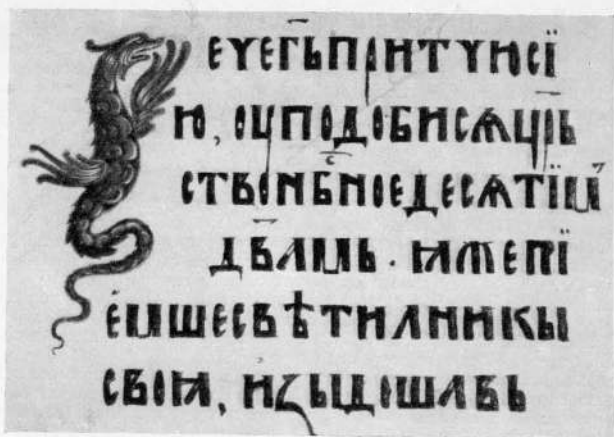 Рече г҃ь притчю сї
ю, оуподобисѧ цр҃ь
ство нбⷭ҇ное десѧтїм
дв҃амь. ꙗже прї
емше свѣтилникы
своꙗ, изыдоша вь